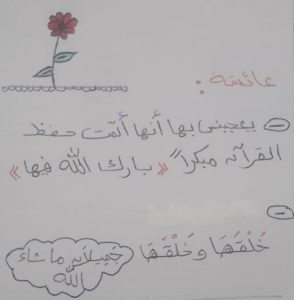 عائشة :
- يعجبني بها أنها أتمت حفظ
القرآن مبكراً "بارك الله فيها"
-
خُلُقَهَا وَخَلْقَهَا جميلان ما شاء
الله